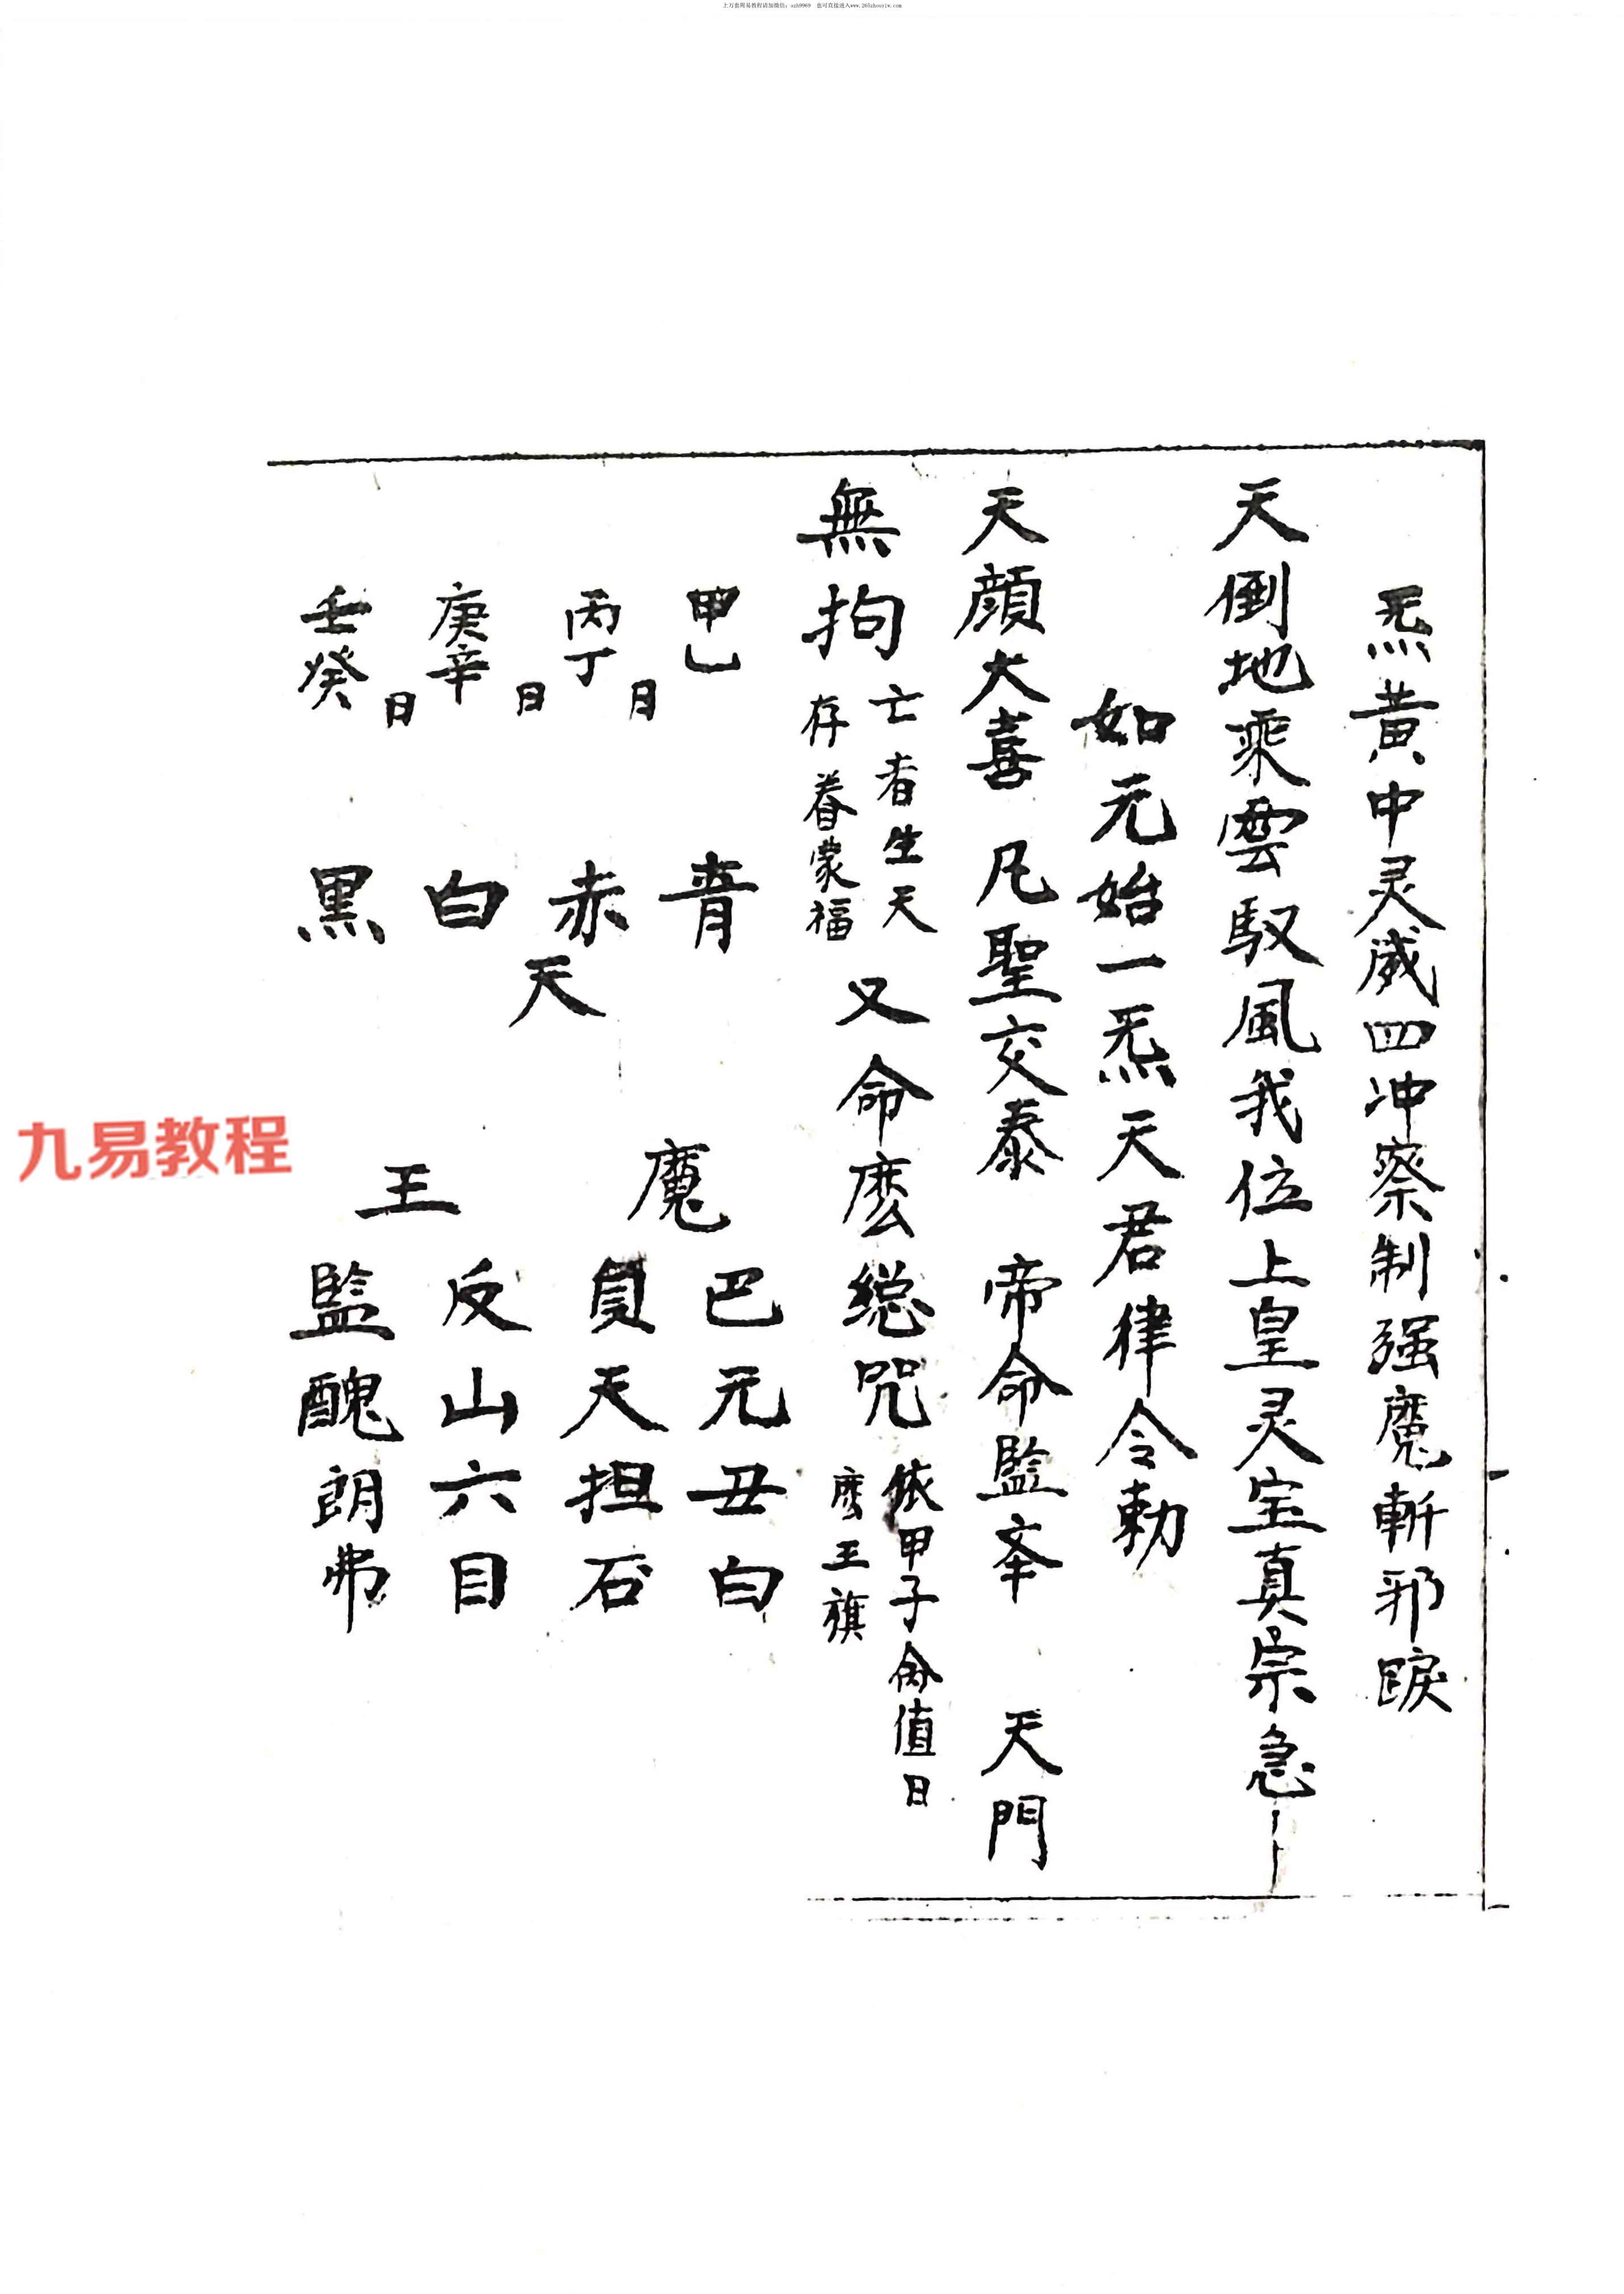 上万套周易教程请加微信：szh9969 也可直接进入www.265zhouyiw.com
炁黃中灵威四冲察制强魔斬邪
天倒地乘雲馭風我位上皇灵宝真宗急
如元始一炁天君律令勅
天顔大喜 凡聖交泰 帝命監 天門
無拘 亡者生天 存眷蒙福 又命麽総咒 依甲子禽值日 麽王旗
甲乚 月 青 天 魔 巴元丑白
丙丁 日 赤 負天担石
庚辛 日 白 王 反山六目
壬癸 黑 監醜朗弗
九易教程